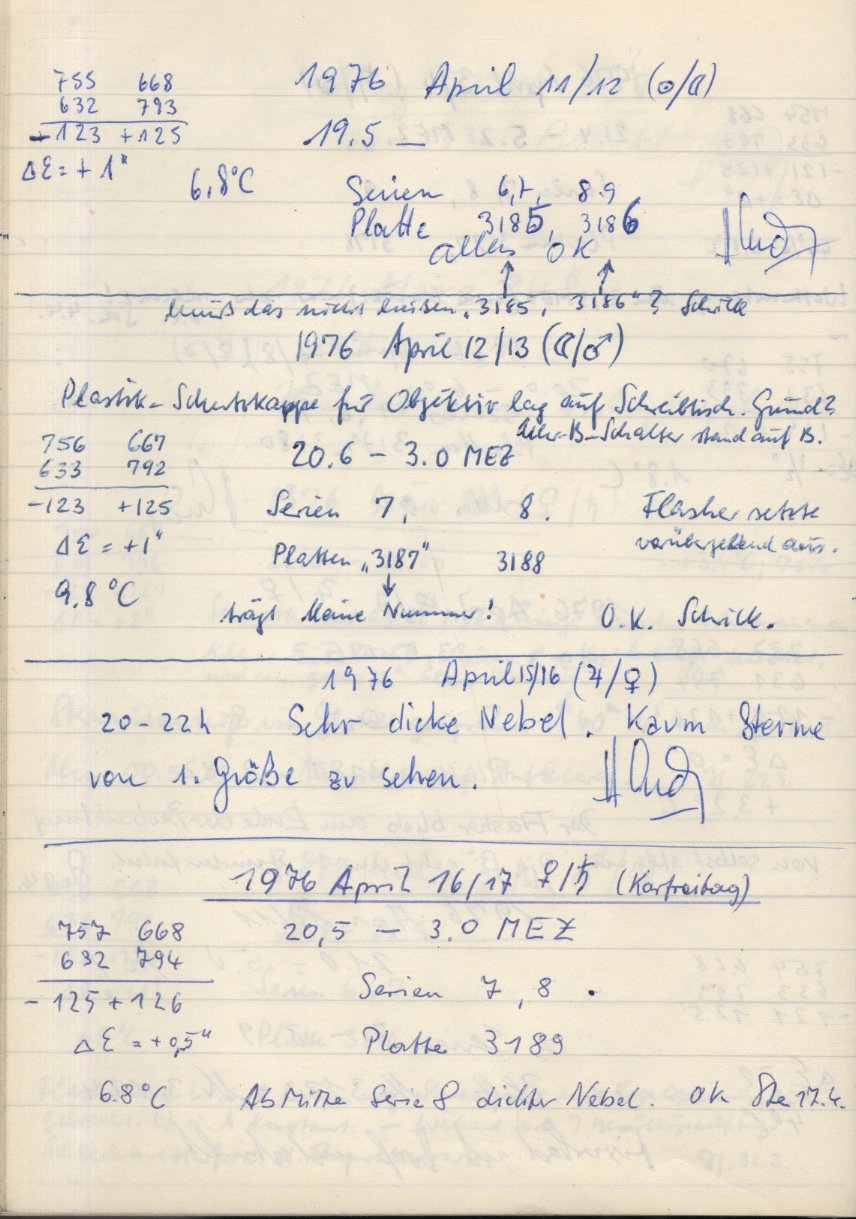 755 668
632 793
-123 +125
ΔE = +1"
6,8°C
1976 April 11/12 (☉/☾)
19.5 —
Serien 6,7, 8.9
Platte 3185, 3186
alles OK
muß das nicht heißen „3185, 3186“? Schick
1976 April 12/13 (☾/♂)
Plastik-Schutzkappe für Objektiv lag auf Schreibtisch. Grund?
-B-Schalter stand auf B.
756 667
633 792
-123 +125
ΔE = +1"
9.8°C
20.6 – 3.0 MEZ
Serien 7, 8.
Platten „3187“ 3188
trägt keine Nummer!
Flasher setzte
vorübergehend aus.
O.K. Schick.
1976 April 15/16 (♃/♀)
20-22h Sehr dicke Nebel. Kaum Sterne
von 1. Größe zu sehen.
1976 April 16/17 ♀/♄ (Karfreitag)
757 668
632 794
-125 +126
ΔE = +0,5"
6.8°C
20,5 – 3.0 MEZ
Serien 7, 8.
Platte 3189
Ab Mitte Serie 8 dichter Nebel. OK 17.4.